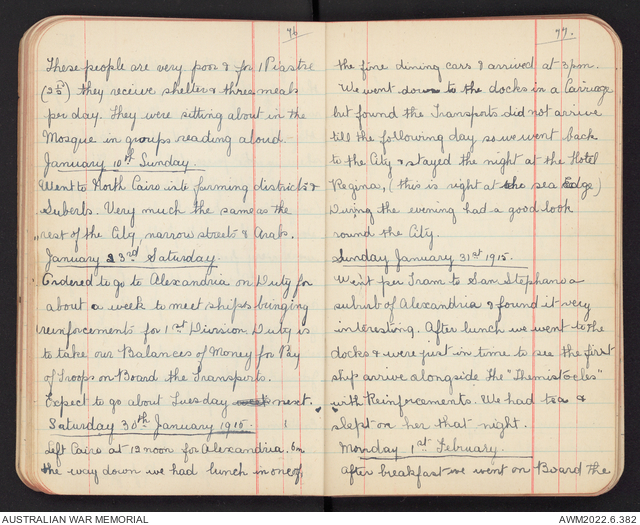 76
These people are very poor & for 1 Piastre
(2½ᵈ) they receive shelter & three meals
per day. They were sitting about in the
Mosque in groups reading aloud.
January 10th Sunday.
Went to North Cairo into farming districts &
Suberbs. Very much the same as the
rest of the City, narrow streets & Arabs.
January 23rd Saturday.
Ordered to go to Alexandria on Duty for
about a week to meet ships bringing
reinforcements for 1st Division. Duty is
to take our Balances of Money for Pay
of Troops on Board the Transports.
Expect to go about Tuesday next.
Saturday 30th January 1915.
Left Cairo at 12 noon for Alexandria. On
the way down we had lunch in one of
77.
the fine dining cars & arrived at 3pm.
We went down to the docks in a Carriage
but found the Transports did not arrive
till the following day so we went back
to the City & stayed the night at the Hotel
Regina, (this is right at the sea Edge)
During the evening had a good look
round the City.
Sunday January 31st 1915.
Went per Tram to San Stephano a
suburb of Alexandria & found it very
interesting. After lunch we went to the
docks & were just in time to see the first
ship arrive alongside the "Themistocles"
with Reinforcements. We had tea &
slept on her that night.
Monday 1st February.
After breakfast we went on Board the
AUSTRALIAN WAR MEMORIAL
AWM2022.6.382